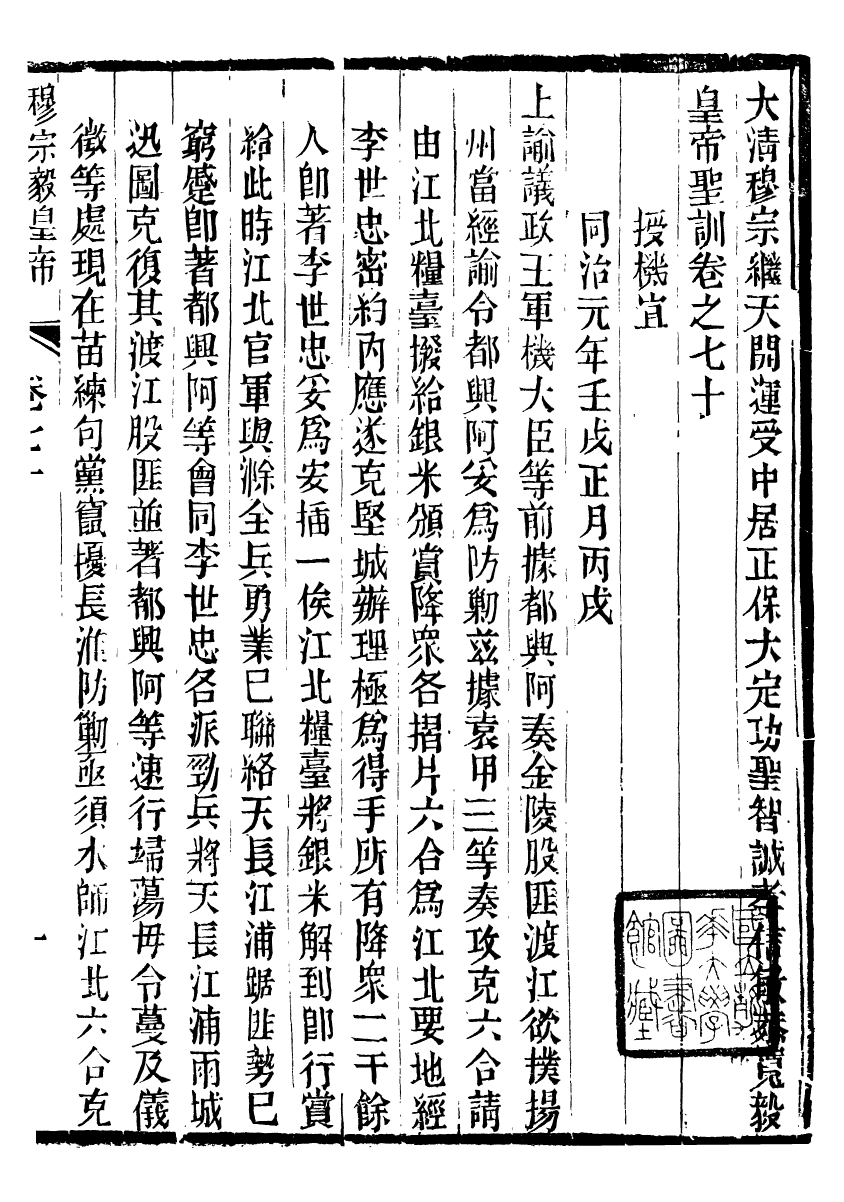 大清穆宗繼天開運受中居正保大定功聖智誠孝信敏恭寬毅
皇帝聖訓卷之七十
授機宜
同治元年壬戌正月丙戌
上諭議政王軍機大臣等前據都興阿奏金陵股匪渡江欲撲揚
州當經諭令都興阿妥爲防勦茲據袁甲三等奏攻克六合請
由江北糧臺撥給銀米頒賞降眾各摺片六合爲江北要地經
李世忠密約內應遂克堅城辦理極爲得手所有降眾二千餘
人卽著李世忠妥爲安插一俟江北糧臺將銀米解到卽行賞
給此時江北官軍與滁全兵勇業已聯絡天長江浦踞匪勢已
窮蹙卽著都興阿等會同李世忠各派勁兵將天長江浦兩城
迅圖克復其渡江股匪並著都興阿等速行埽蕩毋令蔓及儀
徵等處現在苗練句黨竄擾長淮防勦亟須水師江北六合克
穆宗毅皇帝
卷七十
一
國立清華大學圖書館藏